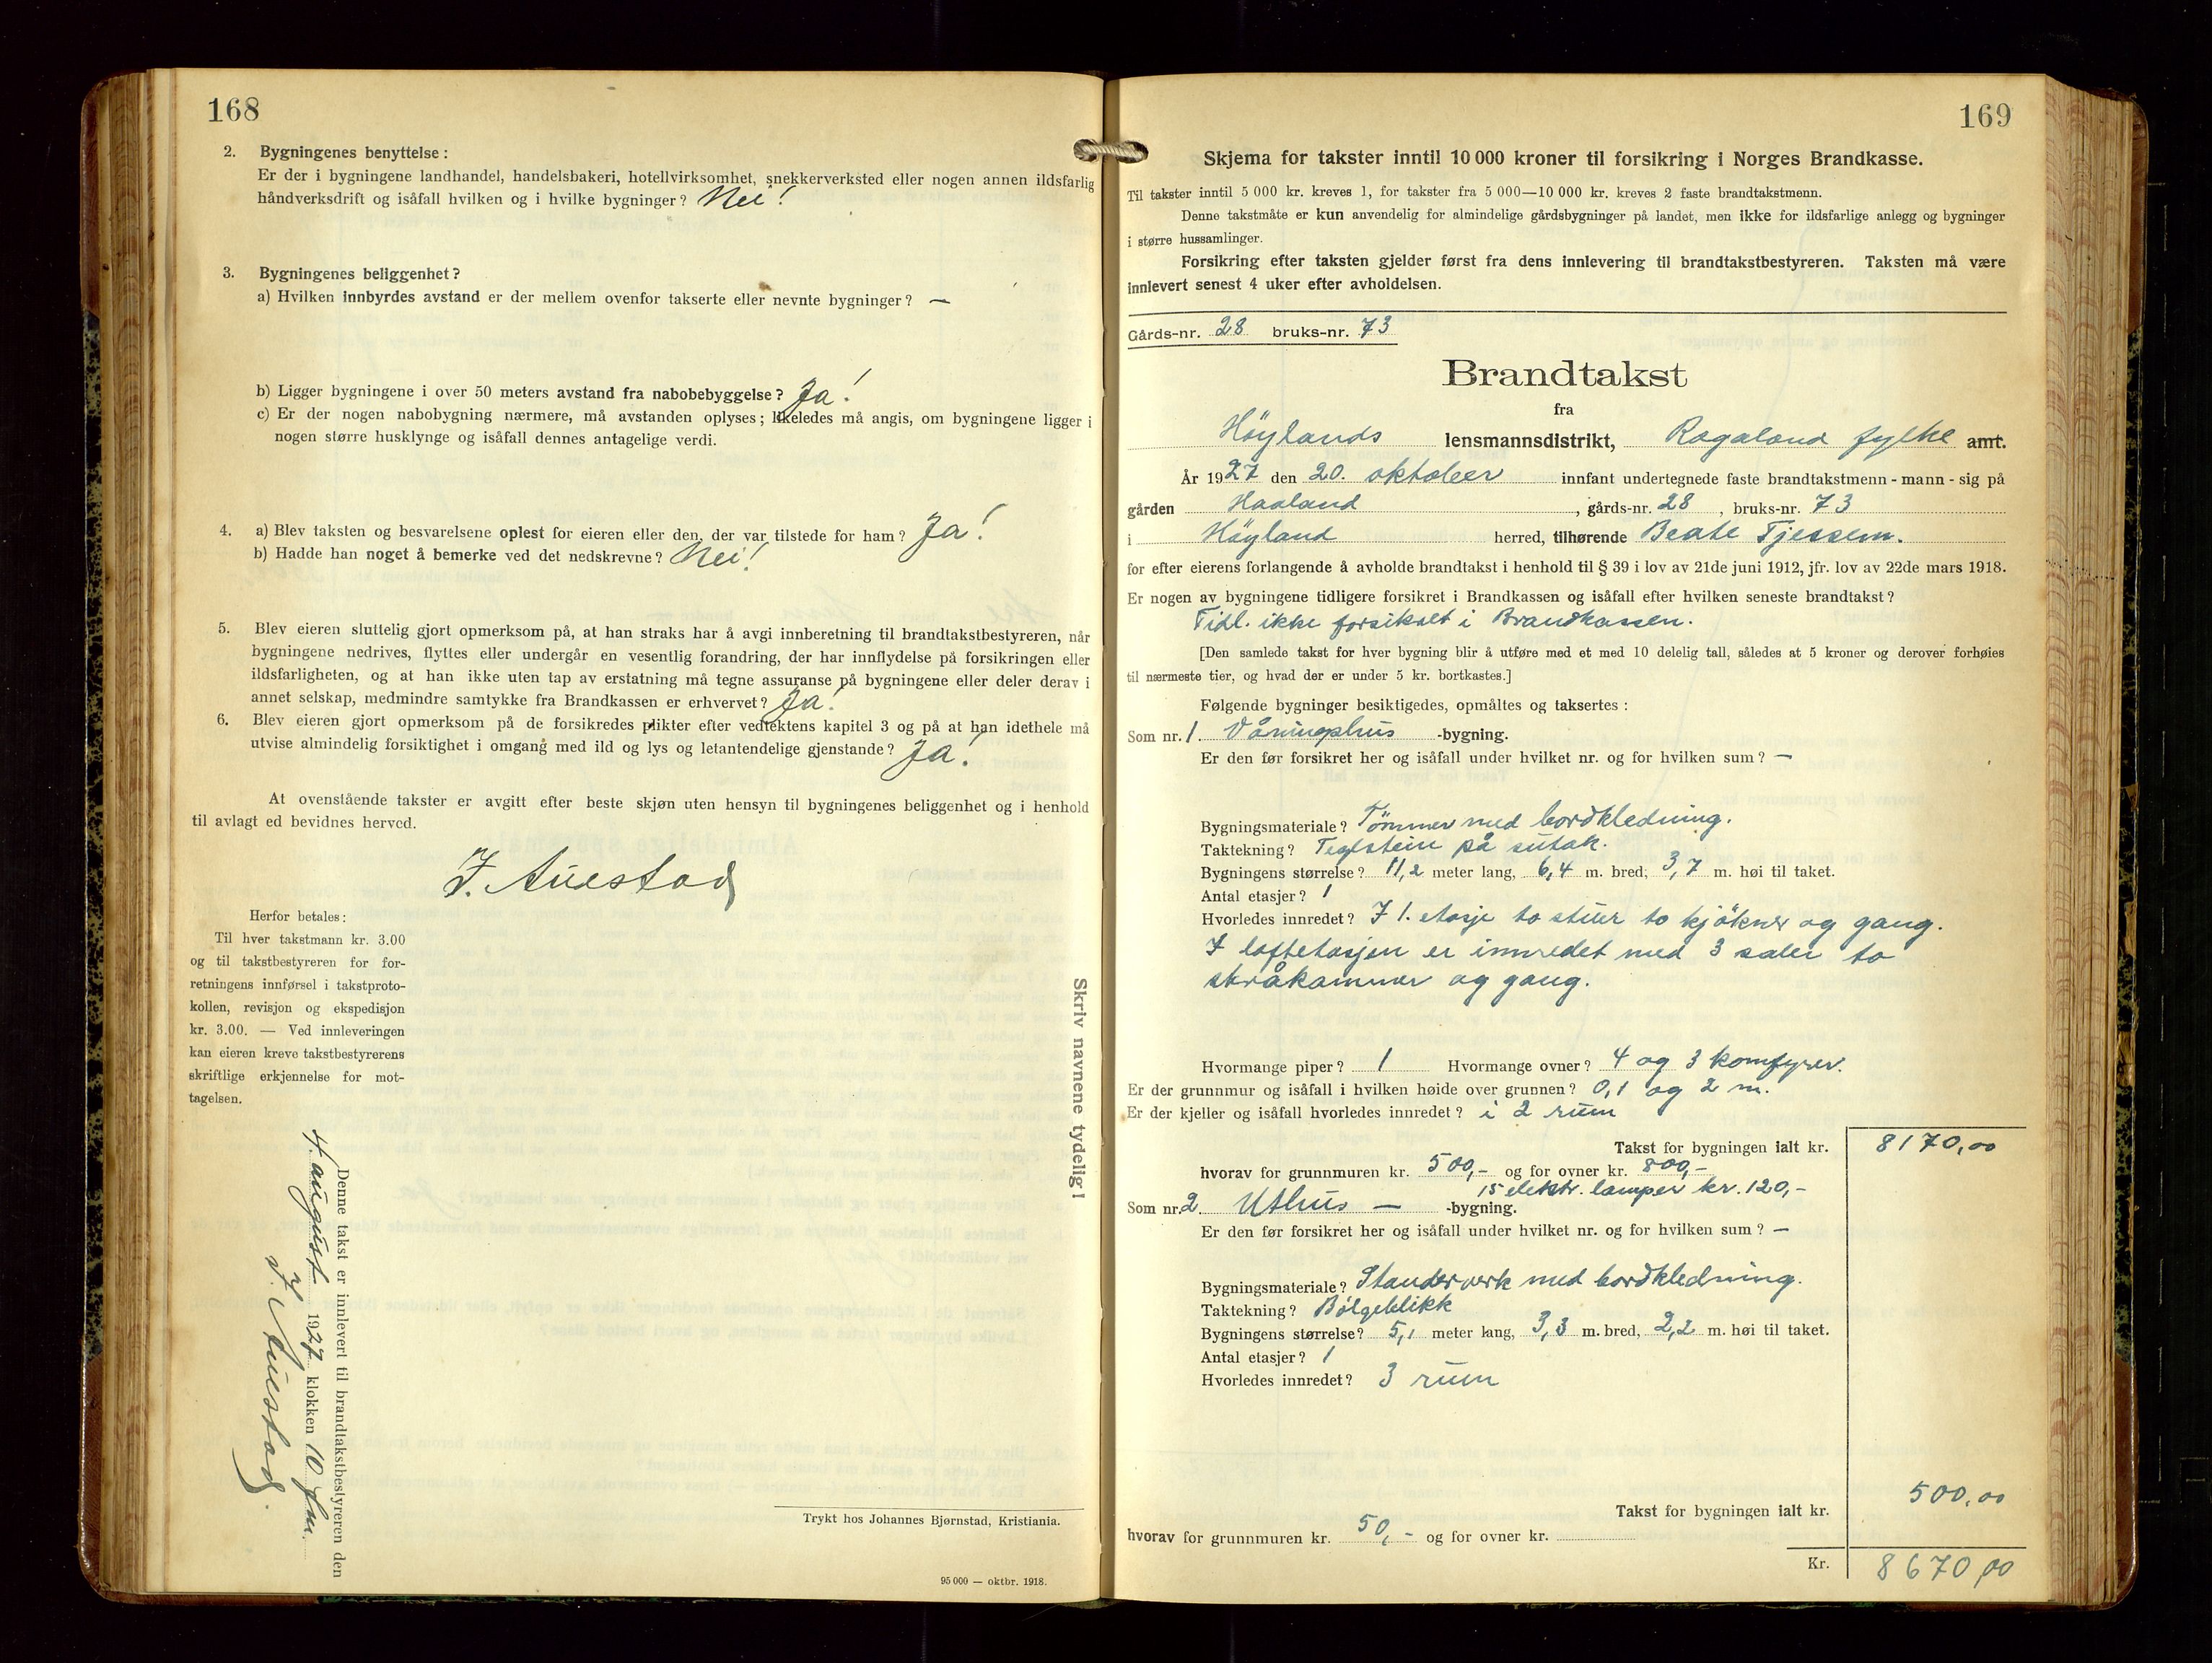 168
2. Bygningenes benyttelse:
Er der i bygningene landhandel, handelsbakeri, hotellvirksomhet, snekkerverksted eller nogen annen ildsfarlig
håndverksdrift og isåfall hvilken og i hvilke bygninger? Nei!
3. Bygningenes beliggenhet?
a) Hvilken innbyrdes avstand er der mellem ovenfor takserte eller nevnte bygninger? —
b) Ligger bygningene i over 50 meters avstand fra nabobebyggelse? Ja!
c) Er der nogen nabobygning nærmere, må avstanden oplyses; likeledes må angis, om bygningene ligger i
nogen større husklynge og isåfall dennes antagelige verdi.
4. a) Blev taksten og besvarelsene oplest for eieren eller den, der var tilstede for ham? Ja!
b) Hadde han noget å bemerke ved det nedskrevne? Nei!
5. Blev eieren sluttelig gjort opmerksom på, at han straks har å avgi innberetning til brandtakstbestyreren, når
bygningene nedrives, flyttes eller undergår en vesentlig forandring, der har innflydelse på forsikringen eller
ildsfarligheten, og at han ikke uten tap av erstatning må tegne assuranse på bygningene eller deler derav i
annet selskap, medmindre samtykke fra Brandkassen er erhvervet? Ja!
6. Blev eieren gjort opmerksom på de forsikredes plikter efter vedtektens kapitel 3 og på at han idethele må
utvise almindelig forsiktighet i omgang med ild og lys og letantendelige gjenstande? Ja!
At ovenstående takster er avgitt efter beste skjøn uten hensyn til bygningenes beliggenhet og i henhold
til avlagt ed bevidnes herved.
J. Auestad
Herfor betales:
Til hver takstmann kr. 3.00
og til takstbestyreren for for-
retningens innførsel i takstproto-
kollen, revisjon og ekspedisjon
kr. 3.00. — Ved innleveringen
kan eieren kreve takstbestyrerens
skriftlige erkjennelse for mot-
tagelsen.
Skriv navnene tydelig!
Denne takst er innlevert til brandtakstbestyreren den
4. august 1927 klokken 10 fm.
J. Auestad.
Trykt hos Johannes Bjørnstad, Kristiania.
95 000 — oktbr. 1918.
169
Skjema for takster inntil 10 000 kroner til forsikring i Norges Brandkasse.
Til takster inntil 5 000 kr. kreves 1, for takster fra 5 000—10 000 kr. kreves 2 faste brandtakstmenn.
Denne takstmåte er kun anvendelig for almindelige gårdsbygninger på landet, men ikke for ildsfarlige anlegg og bygninger
i større hussamlinger.
Forsikring efter taksten gjelder først fra dens innlevering til brandtakstbestyreren. Taksten må være
innlevert senest 4 uker efter avholdelsen.
Gårds-nr. 28 bruks-nr. 73
Brandtakst
fra
Höylands lensmannsdistrikt, Rogaland fylke amt.
År 1927 den 20. oktober innfant undertegnede faste brandtakstmenn - mann - sig på
gården Haaland, gårds-nr. 28, bruks-nr. 73
i Höyland herred, tilhørende Beate Tjessem.
for efter eierens forlangende å avholde brandtakst i henhold til § 39 i lov av 21de juni 1912, jfr. lov av 22de mars 1918.
Er nogen av bygningene tidligere forsikret i Brandkassen og isåfall efter hvilken seneste brandtakst?
Tidl. ikke forsikret i Brandkassen.
[Den samlede takst for hver bygning blir å utføre med et med 10 delelig tall, således at 5 kroner og derover forhøies
til nærmeste tier, og hvad der er under 5 kr. bortkastes.]
Følgende bygninger besiktigedes, opmåltes og taksertes:
Som nr. 1. Våningshus -bygning.
Er den før forsikret her og isåfall under hvilket nr. og for hvilken sum? —
Bygningsmateriale? Tömmer med bordkledning.
Taktekning? Teglstein på sutak.
Bygningens størrelse? 11,2 meter lang, 6,4 m. bred, 3,7 m. høi til taket.
Antal etasjer? 1
Hvorledes innredet? I 1. etasje to stuer to kjökner og gang.
I loftetasjen er innredet med 3 saler to
skråkammer og gang.
Hvormange piper? 1 Hvormange ovner? 4 og 3 komfyrer.
Er der grunnmur og isåfall i hvilken høide over grunnen? 0,1 og 2 m.
Er der kjeller og isåfall hvorledes innredet? i 2 rum
Takst for bygningen ialt kr. 8170,00
hvorav for grunnmuren kr. 500,- og for ovner kr. 800,-
15 elektr. lamper kr. 120,-
Som nr. 2 Uthus — -bygning.
Er den før forsikret her og isåfall under hvilket nr. og for hvilken sum? —
Bygningsmateriale? Standerverk med bordkledning.
Taktekning? Bölgeblikk
Bygningens størrelse? 5,1 meter lang, 3,3 m. bred, 2,2 m. høi til taket.
Antal etasjer? 1
Hvorledes innredet? 3 rum
Takst for bygningen ialt kr. 500,00
hvorav for grunnmuren kr. 50,- og for ovner kr.
Kr. 8670,00